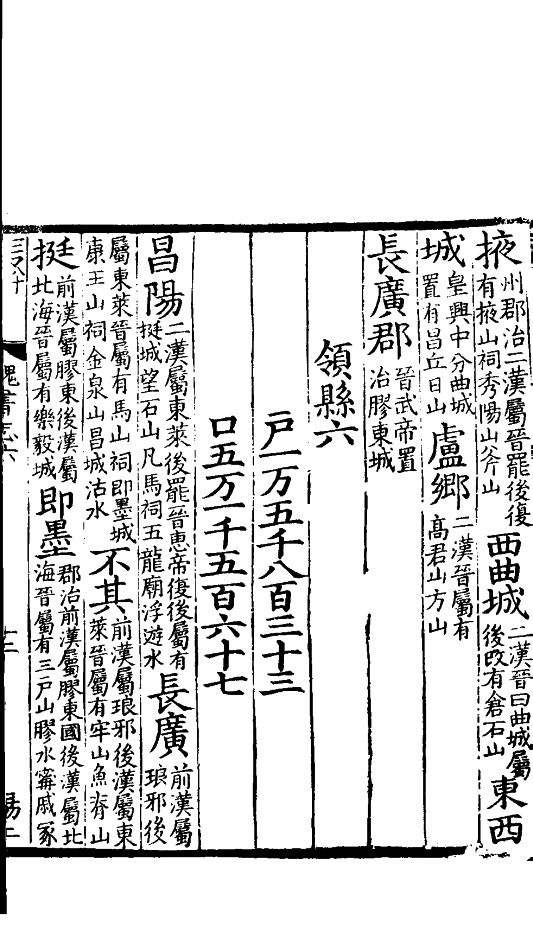 掖州郡治二漢屬晉罷後復有掖山祠秀陽山斧山西曲城二漢晉曰曲城屬後改有倉石山東西
城皇興中分曲城置有昌丘日山盧鄉二漢晉屬有高君山方山
長廣郡晉武帝置治膠東城
領縣六
戸一万五千八百三十三
口五万一千五百六十七
昌陽二漢屬東萊後罷晉惠帝復後屬有挺城望石山凡馬祠五龍廟浮遊水長廣前漢屬琅邪後
屬東萊晉屬有馬山祠即墨城康王山祠金泉山昌城沽水不其前漢屬琅邪後漢屬東萊晉屬有牢山魚脊山
挺前漢屬膠東後漢屬北海晉屬有樂毅城即墨郡治前漢屬膠東國後漢屬北海晉屬有三戸山膠水寗戚冢
魏書志六